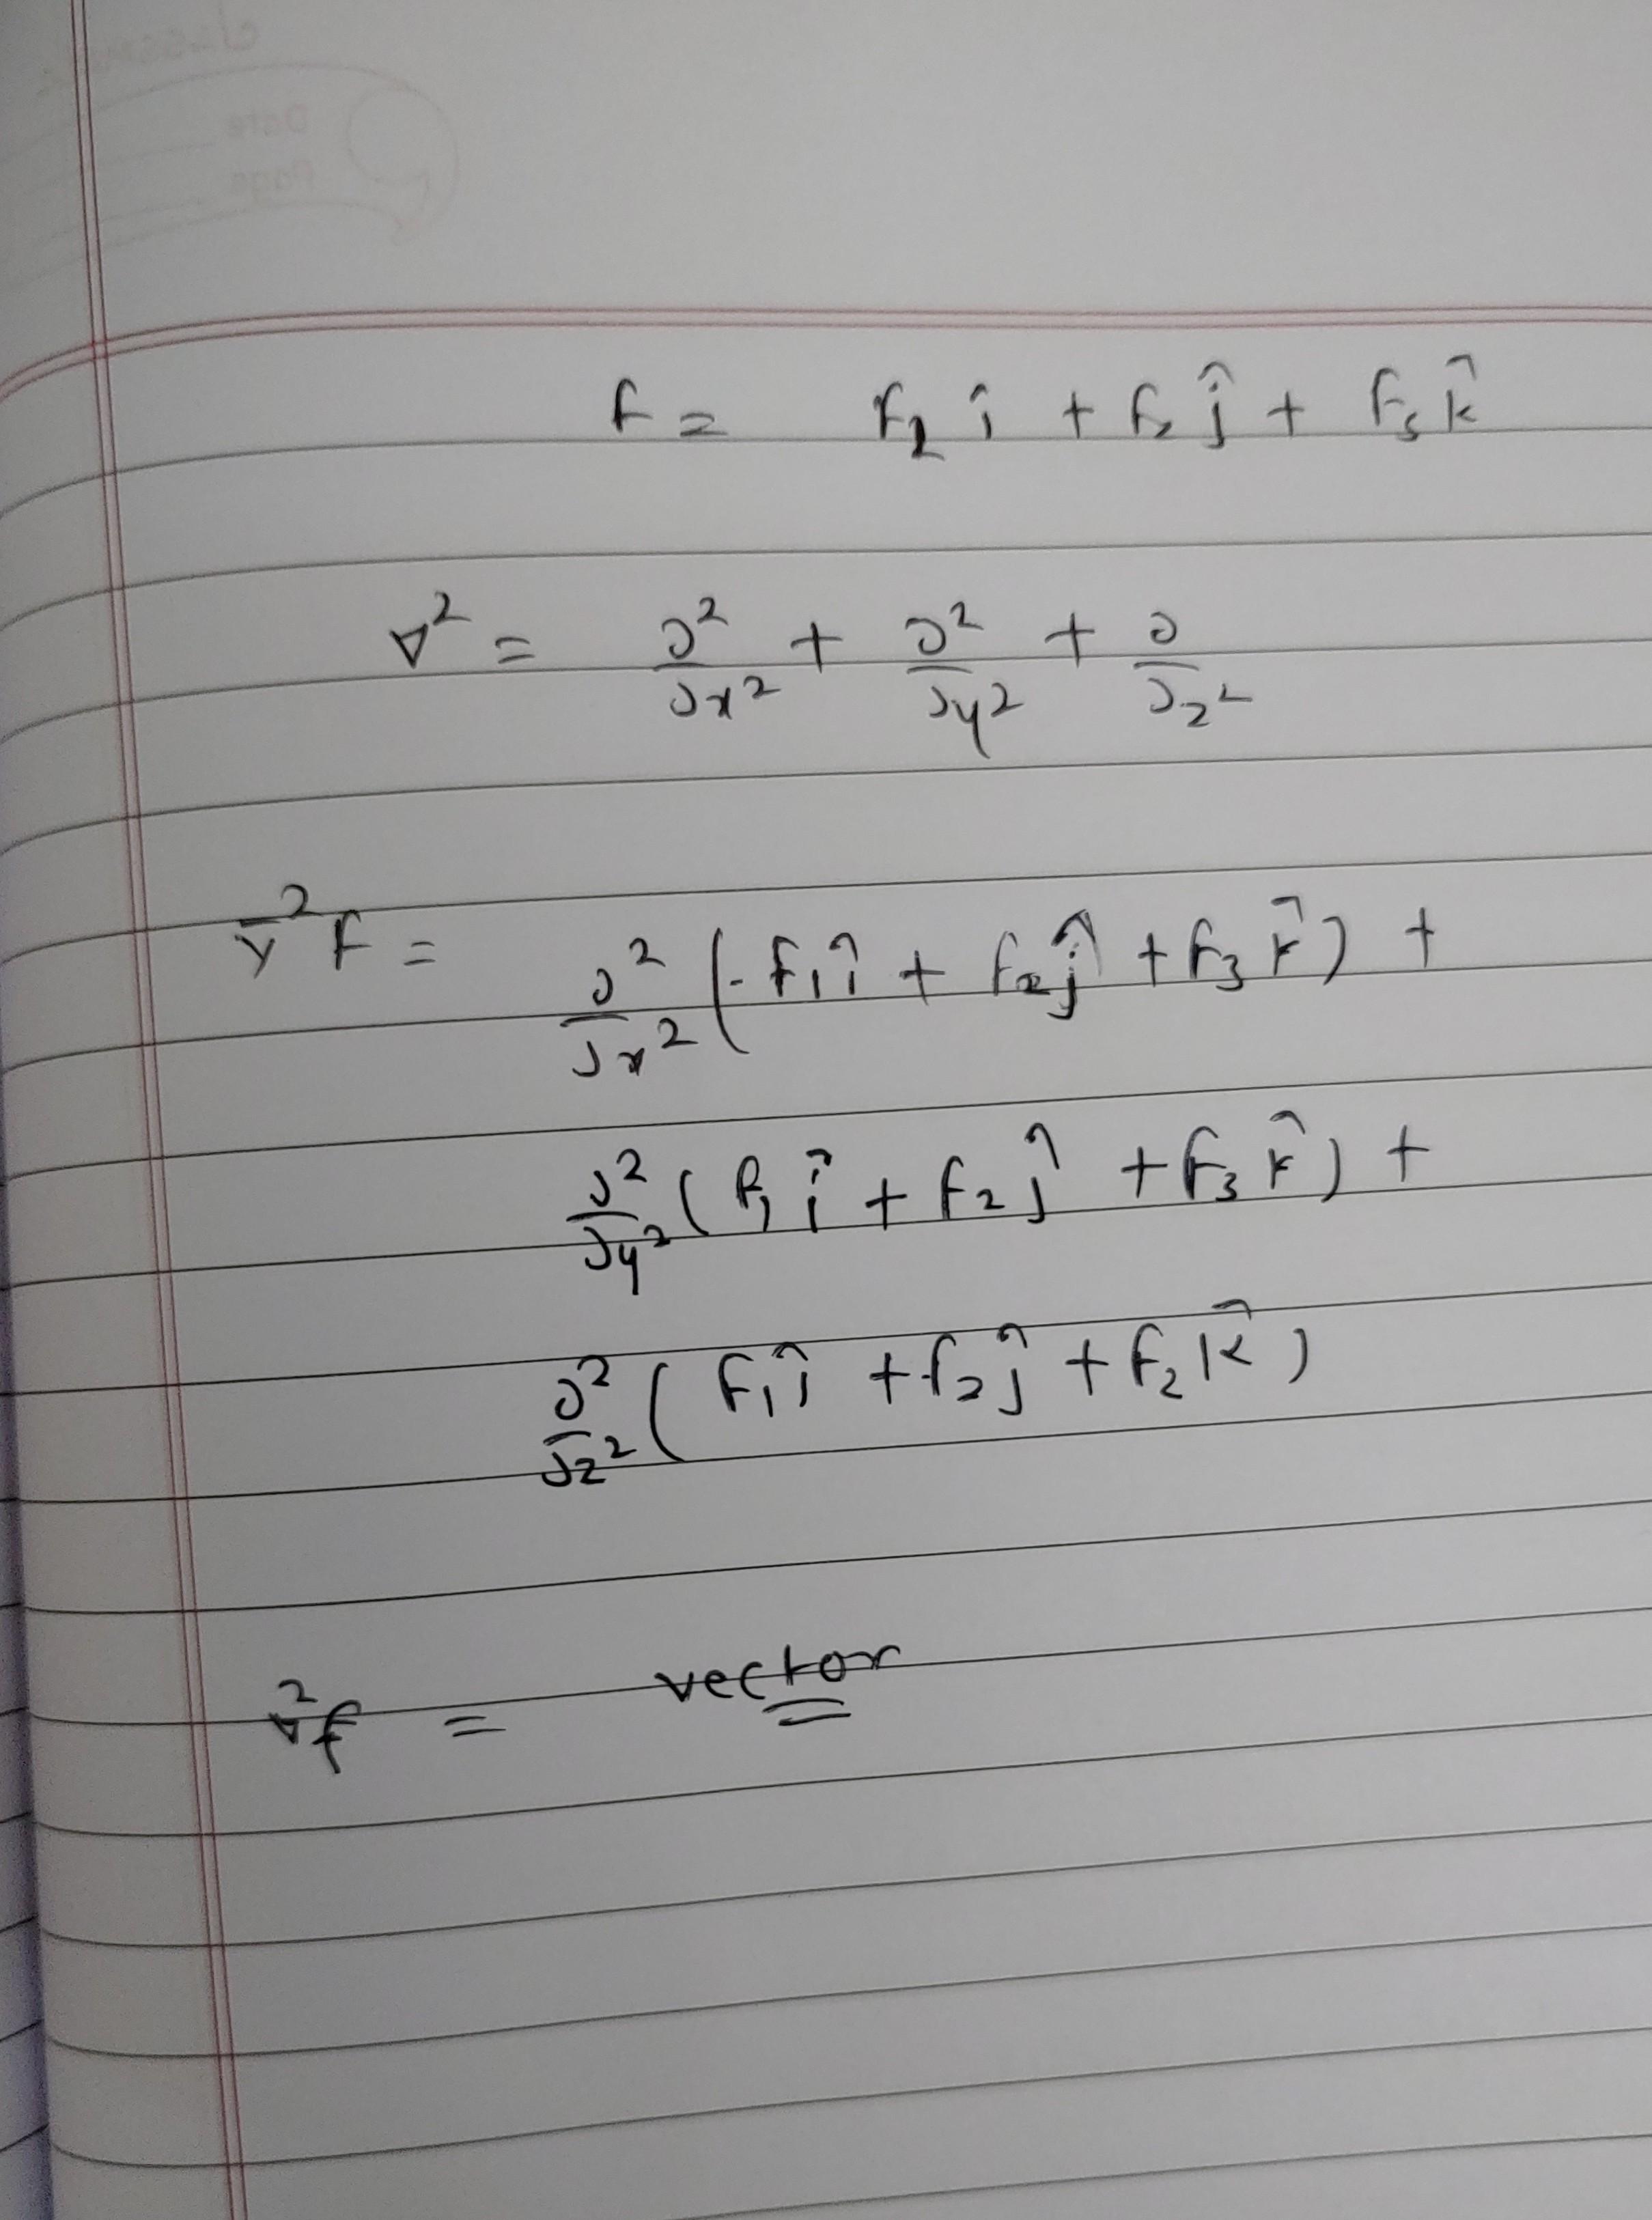 F = F₁ î + F₂ ĵ + F₃ k̂
∇² = ∂²/∂x² + ∂²/∂y² + ∂/∂z²
∇²F = ∂²/∂x² (F₁î + F₂ĵ + F₃k̂) +
∂²/∂y² (F₁î + F₂ĵ + F₃k̂) +
∂²/∂z² (F₁î + F₂ĵ + F₂k̂)
∇²f = vector